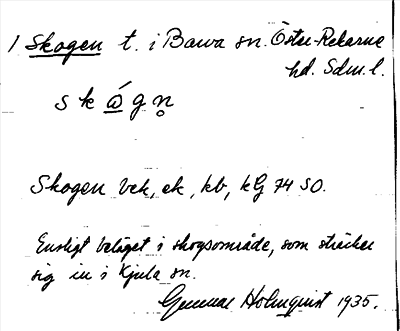 1 Skogen t. i Barva sn. Öster-Rekarne
hd. Sdm. l.
skǻgn̥
Skogen bek, ek, kb, kG 74 SO.
Ensligt beläget i skogsområde, som sträcker
sig in i Kjula sn.
Gunnar Holmquist 1935.